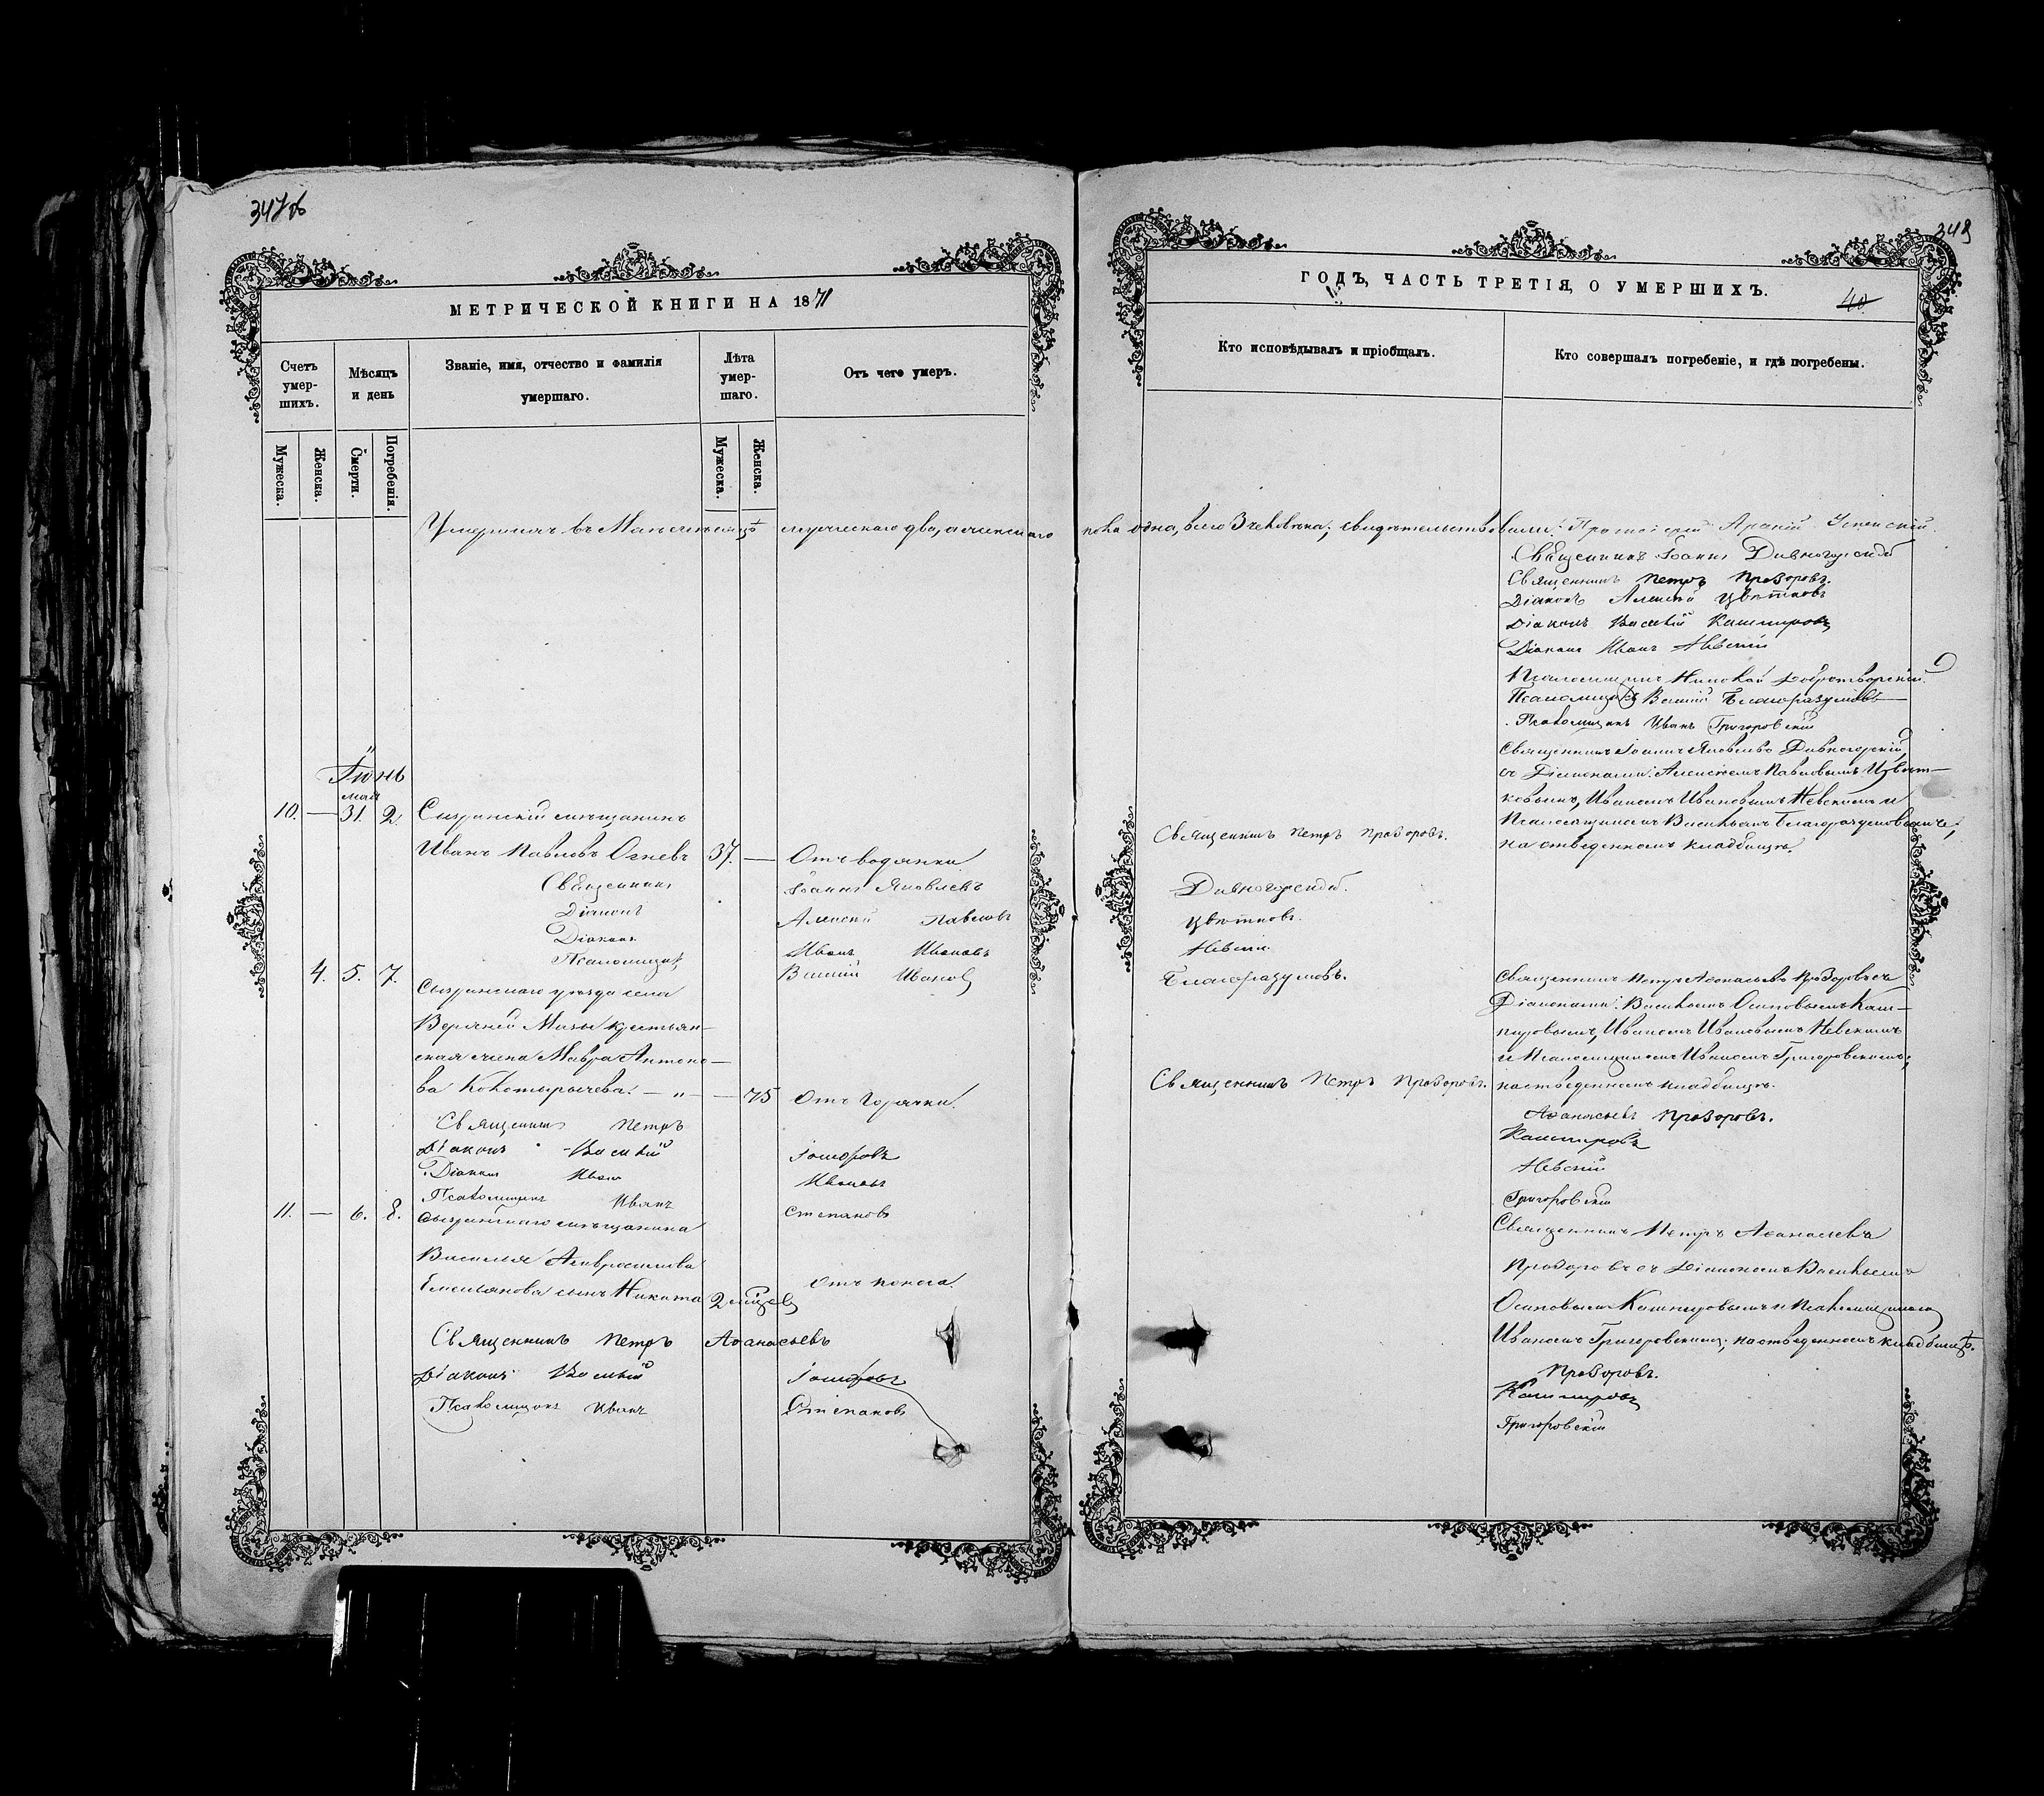 347об
МЕТРИЧЕСКОЙ КНИГИ НА 1871
Счетъ умер-шихъ.
Мѣсяцъ и день
Званіе, имя, отчество и фамилія умершаго.
Лѣта умер-шаго.
Отъ чего умеръ.
Мужеска.
Женска.
Смерти.
Погребенія.
Мужеска.
Женска.
Умершихъ въ Маѣ мѣсяцѣ мужескаго два, а женскаго
Іюнь
май
10. — 31. 2. Сызранскій мѣщанинъ
Иванъ Павловъ Огневъ 37. — Отъ водянки
Священникъ Іоаннъ Яковлевъ
Діаконъ Алексій Павловъ
Діаконъ Иванъ Ивановъ
Псаломщикъ Василій Ивановъ
4. 5. 7. Сызранскаго уѣзда села
Верхней Мазы крестьян-
ская жена Мавра Антоно-
ва — „ — — 75 Отъ горячки.
Священникъ Петръ
Діаконъ Василій Іосифовъ
Діаконъ Иванъ Ивановъ
Псаломщикъ Иванъ Степановъ
11. — 6. 8. Сызранскаго мѣщанина
Василія Амвросимова
Емельянова сынъ Никита 2 мѣсяц. Отъ поноса.
Священникъ Петръ Аѳанасьевъ
Діаконъ Василій Іосифовъ
Псаломщикъ Иванъ Степановъ
348
ГОДЪ, ЧАСТЬ ТРЕТІЯ, О УМЕРШИХЪ.
40
Кто исповѣдывалъ и пріобщалъ.
Кто совершалъ погребеніе, и гдѣ погребены.
пола одна, всего 3 человѣка; свидѣтельствовали: Протоіерей Успенскій.
Священникъ Іоаннъ Дивногорскій
Священникъ Петръ Прозоровъ.
Діаконъ Алексій Цвѣтковъ
Діаконъ Василій Кашпировъ
Діаконъ Иванъ Невскій
Псаломщикъ Николай Добротворскій.
Псаломщикъ Василій Благоразумовъ
Псаломщикъ Иванъ Григоровскій
Священникъ Іоаннъ Яковлевъ Дивногорскій,
съ Діаконами: Алексіемъ Павловымъ Цвѣт-
ковымъ, Иваномъ Ивановымъ Невскимъ и
Псаломщикомъ Васильемъ Благоразумовымъ;
на отведенномъ кладбищѣ.
Священникъ Петръ Прозоровъ.
Дивногорскій.
Цвѣтковъ.
Невскій.
Благоразумовъ.
Священникъ Петръ Аѳанасьевъ Прозоровъ съ
Діаконами: Васильемъ Осиповымъ Каш-
пировымъ, Иваномъ Ивановымъ Невскимъ
и Псаломщикомъ Иваномъ Григоровскимъ;
на отведенномъ кладбищѣ.
Священникъ Петръ Прозоровъ.
Аѳанасьевъ Прозоровъ.
Кашпировъ
Невскій
Григоровскій
Священникъ Петръ Аѳанасьевъ
Прозоровъ съ Діакономъ Васильемъ
Осиповымъ Кашпировымъ и Псаломщикомъ
Иваномъ Григоровскимъ; на отведенномъ кладбищѣ.
Прозоровъ.
Кашпировъ
Григоровскій